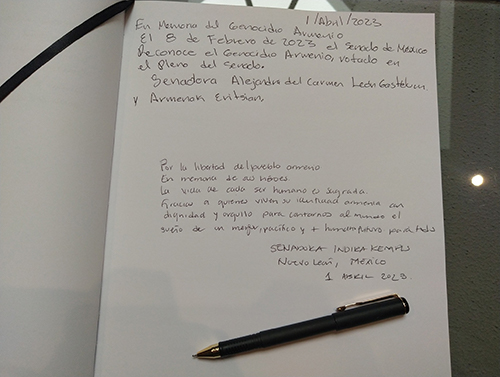 1/Abril/2023
En Memoria del Genocidio Armenio
El 8 de Febrero de 2023 el Senado de México
Reconoce el Genocidio Armenio, votado en
el Pleno del Senado.
Senadora Alejandra del Carmen León Gastélum
y Armenak Eritsian,
Por la libertad del pueblo armeno
En memoria de sus héroes.
La vida de cada ser humano es sagrada.
Gracias a quienes viven su identidad armenia con
dignidad y orgullo para contarnos al mundo el
sueño de un mejor, pacífico y + humano futuro para todos
SENADORA INDIRA KEMPIS
NUEVO LEÓN, MÉXICO
1 ABRIL 2023